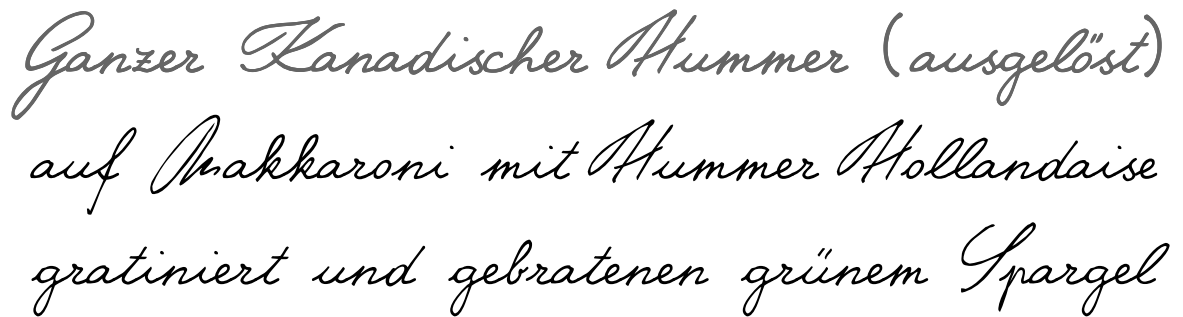 Ganzer Kanadischer Hummer (ausgelöst)
auf Makkaroni mit Hummer Hollandaise
gratiniert und gebratenen grünem Spargel